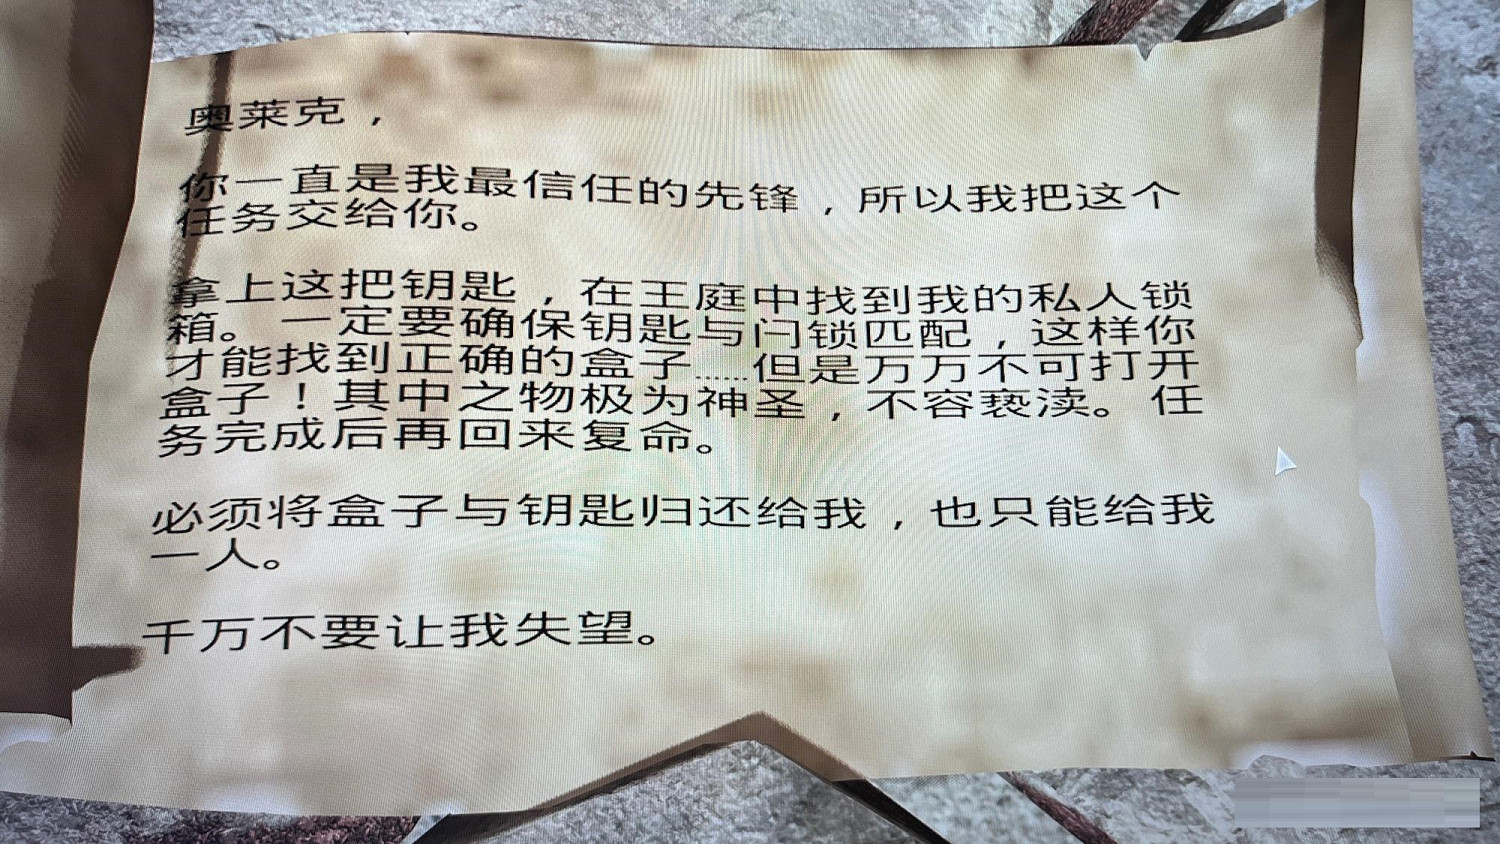 奥莱克，
你一直是我最信任的先锋，所以我把这个
任务交给你。
拿上这把钥匙，在王庭中找到我的私人锁
箱。一定要确保钥匙与门锁匹配，这样你
才能找到正确的盒子……但是万万不可打开
盒子！其中之物极为神圣，不容亵渎。任
务完成后再回来复命。
必须将盒子与钥匙归还给我，也只能给我
一人。
千万不要让我失望。